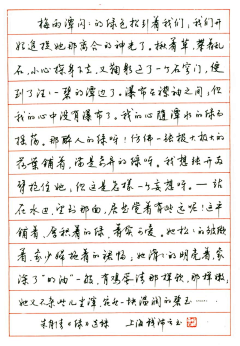 梅雨潭闪闪的绿色招引着我们，我们开
始追捉她那离合的神光了。揪着草，攀着乱
石，小心探身下去，又鞠躬过了一个石穹门，便
到了汪汪一碧的潭边了。瀑布在襟袖之间，但
我的心中没有瀑布了。我的心随潭水的绿而
摇荡。那醉人的绿呀！仿佛一张极大极大的
荷叶铺着，满是奇异的绿呀。我想张开两
臂抱住她，但这是怎样一个妄想呀。——站
在水边，望到那面，居然觉着有些远呢！这平
铺着，厚积着的绿，着实可爱。她松松的皱缬
着，象少妇拖着的裙幅；她滑滑的明亮着，象
涂了“明油”一般，有鸡蛋清那样软，那样嫩；
她又不杂些儿尘滓，宛然一块温润的碧玉……
朱自清《绿》选录 上海钱沛云书